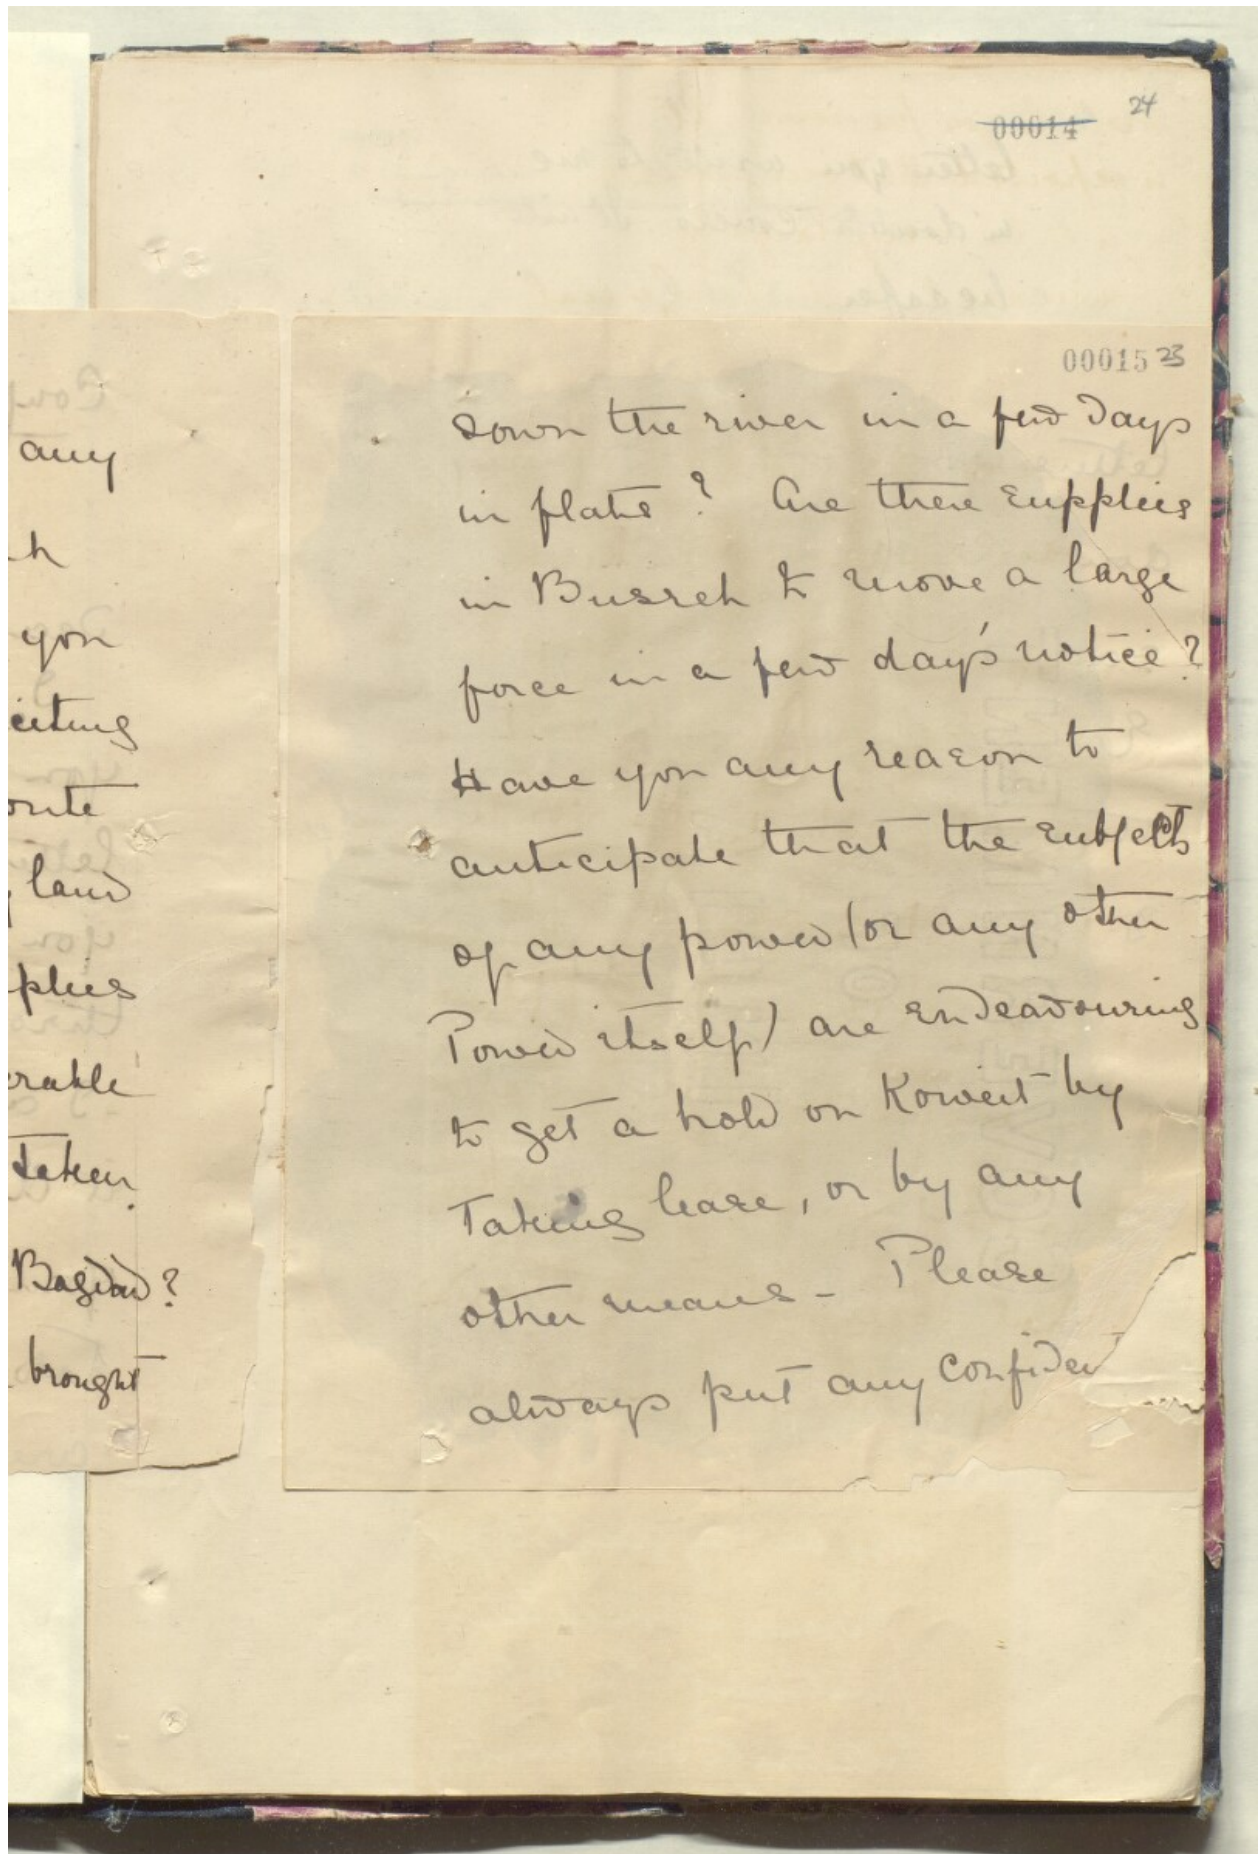 24
00014
any
h
you
citing
land
plies
rable
taken
Bagdad?
brought
00015 23
down the river in a few days
in flats? Are there supplies
in Busreh to move a large
force in a few day's notice?
Have you any reason to
anticipate that the subjects
of any power (or any other
Power itself) are endeavouring
to get a hold on Koweit by
taking lease, or by any
other means - Please
always put any confiden